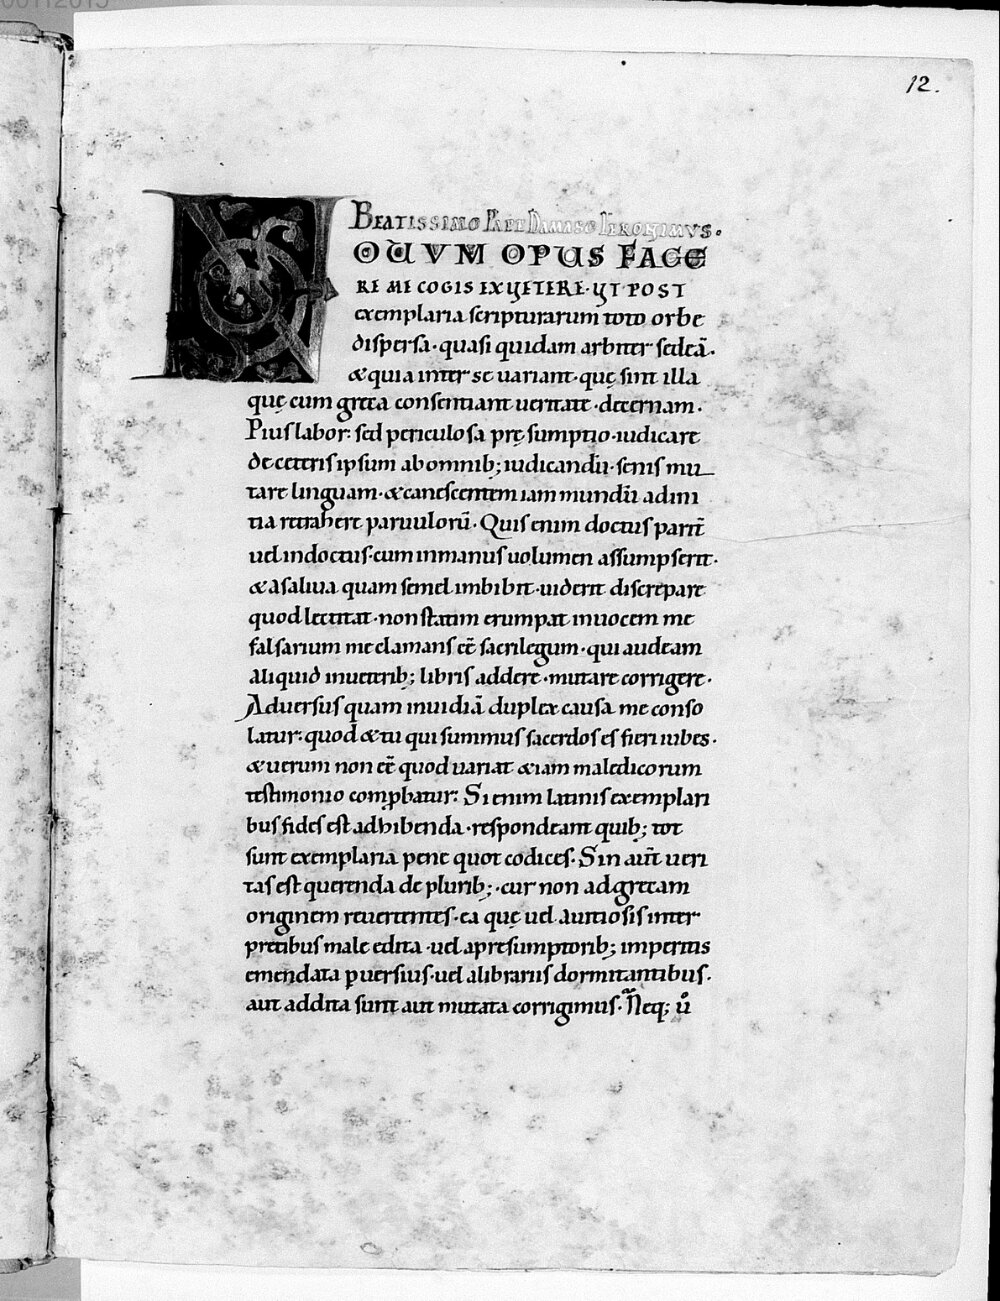 00112015
12.
BEATISSIMO PAPE DAMASO IERONIMVS.
NOUVM OPUS FACE
RE ME COGIS EX VETERE· VT POST
exemplaria scripturarum toto orbe
dispersa· quasi quidam arbiter sedeā·
& quia inter se uariant· quę sint illa
quę cum greca consentiant ueritate· decernam·
Pius labor: sed periculosa pręsumptio· iudicare
de ceteris ipsum ab omnib; iudicandū· senis mu
tare linguam· & canescentem iam mundū ad ini
tia retrahere paruulorū· Quis enim doctus parit̄
uel indoctus· cum in manus uolumen assumpserit·
& a saliua quam semel imbibit· uiderit discrepare
quod lectitat· non statim erumpat in uocem me
falsarium me clamans eē̄ sacrilegum· qui audeam
aliquid in ueterib; libris addere· mutare corrigere·
Aduersus quam inuidiā duplex causa me conso
latur: quod & tu qui summus sacerdos es fieri iubes·
& uerum non eē̄ quod uariat &iam maledicorum
testimonio comp̱batur: Si enim latinis exemplari
bus fides est adhibenda· respondeant quib; tot
sunt exemplaria pene quot codices· Sin aut̄ ueri
tas est querenda de plurib;· cur non ad grecam
originem reuertentes· ea quę uel a uitiosis inter
pretibus male edita· uel a presumptorib; imperitis
emendata ꝑuersius· uel a librariis dormitantibus·
aut addita sunt aut mutata corrigimus· Neq; ů